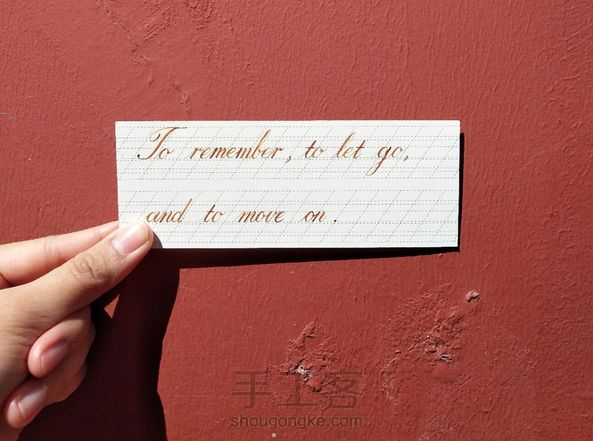 To remember, to let go,
and to move on.
手工客
shougongke.com